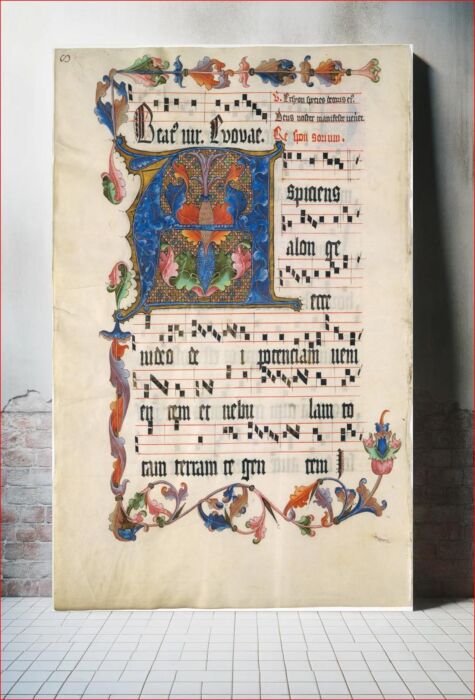 Beat⁹ uir. Euouae.
Deus noster manifeste ueniet.
Re spon sorium.
A spiciens
alon ge
ecce
uideo de i potenciam ueni
en tem et nebu lam to
tam terram te gen tem I